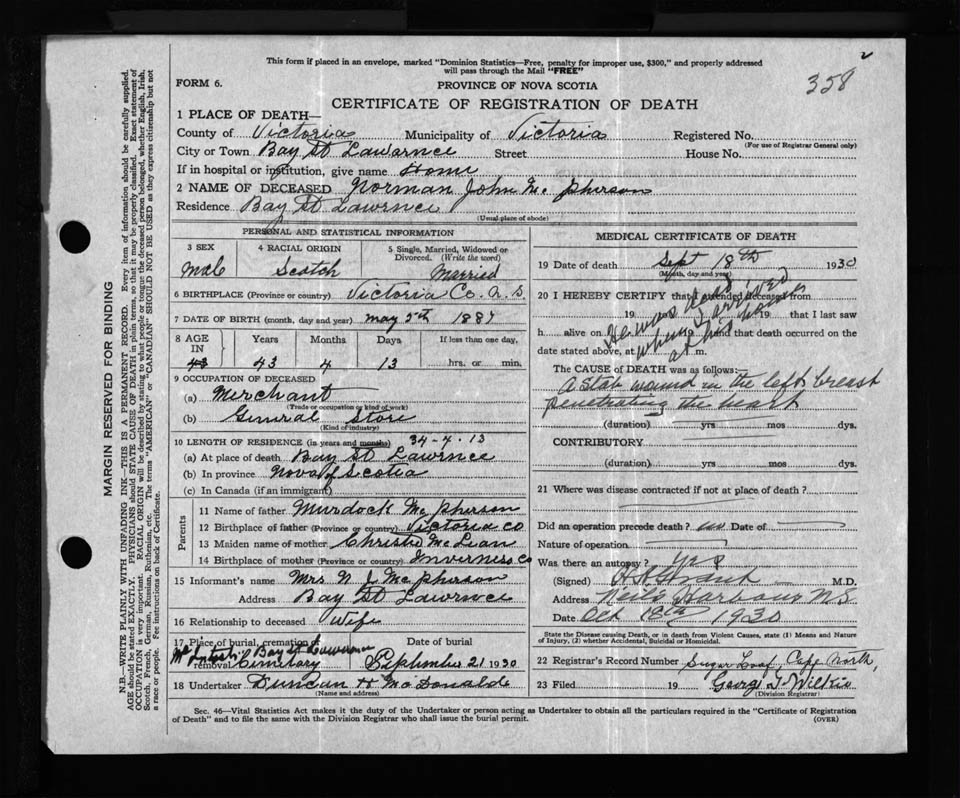 This form if placed in an envelope, marked "Dominion Statistics—Free, penalty for improper use, $300," and properly addressed
will pass through the Mail "FREE"
358
2
FORM 6.
PROVINCE OF NOVA SCOTIA
CERTIFICATE OF REGISTRATION OF DEATH
1 PLACE OF DEATH—
County of Victoria Municipality of Victoria Registered No.
(For use of Registrar General only)
City or Town Bay St Lawarnce Street House No.
If in hospital or institution, give name Home
2 NAME OF DECEASED Norman John Mc pherson
Residence Bay St Lawrnce
(Usual place of abode)
PERSONAL AND STATISTICAL INFORMATION
3 SEX 4 RACIAL ORIGIN 5 Single, Married, Widowed or
Divorced. (Write the word)
Male Scotch Married
6 BIRTHPLACE (Province or country) Victoria Co. N.S.
7 DATE OF BIRTH (month, day and year) May 5th 1887
8 AGE IN Years Months Days If less than one day,
43 43 4 13 hrs. or min.
9 OCCUPATION OF DECEASED
(a) Merchant
(Trade or occupation or kind of work)
(b) General Store
(Kind of industry)
10 LENGTH OF RESIDENCE (in years and months) 34-4-13
(a) At place of death Bay St Lawrnce
(b) In province Nova Scotia
(c) In Canada (if an immigrant)
Parents
11 Name of father Murdock Mc pherson
12 Birthplace of father (Province or country) Victoria Co
13 Maiden name of mother Christie Mc Lean
14 Birthplace of mother (Province or country) Inverness Co
15 Informant's name Mrs N J Mc pherson
Address Bay St Lawrnce
16 Relationship to deceased Wife
17 Place of burial, cremation or Date of burial
Bay St Lawrence
removal Cemetary September 21 1930
18 Undertaker Duncan H McDonald
(Name and address)
MEDICAL CERTIFICATE OF DEATH
19 Date of death Sept 18th 1930
(Month, day and year)
20 I HEREBY CERTIFY that I attended deceased from
19 19 that I last saw
h alive on 19 and that death occurred on the
date stated above, at m.
He was dead
when I arrived
at his house
The CAUSE OF DEATH was as follows:—
A stab wound in the left breast
penetrating the heart
(duration) yrs mos dys.
CONTRIBUTORY
(duration) yrs mos dys.
21 Where was disease contracted if not at place of death?
Did an operation precede death? no Date of
Nature of operation
Was there an autopsy? yes
(Signed) M.D.
Address Neils Harbour N S
Date Oct 18th 1930
State the Disease causing Death, or in death from Violent Causes, state (1) Means and Nature
of Injury, (2) whether Accidental, Suicidal or Homicidal.
22 Registrar's Record Number Sugar Loaf, Cape North,
23 Filed 19 George G Wilkie
(Division Registrar)
Sec. 46—Vital Statistics Act makes it the duty of the Undertaker or person acting as Undertaker to obtain all the particulars required in the "Certificate of Registration
of Death" and to file the same with the Division Registrar who shall issue the burial permit.
(OVER)
MARGIN RESERVED FOR BINDING
N.B.—WRITE PLAINLY WITH UNFADING INK—THIS IS A PERMANENT RECORD. Every item of information should be carefully supplied.
AGE should be stated EXACTLY. PHYSICIANS should STATE CAUSE OF DEATH in plain terms, so that it may be properly classified. Exact statement of
OCCUPATION is very important. RACIAL ORIGIN will be described by stating to what people or tongue the deceased person belonged, whether English, Irish,
Scotch, French, German, Russian, Ruthenian, etc. The terms "AMERICAN" or "CANADIAN" SHOULD NOT BE USED as they express citizenship but not
a race or people. Fee instructions on back of Certificate.